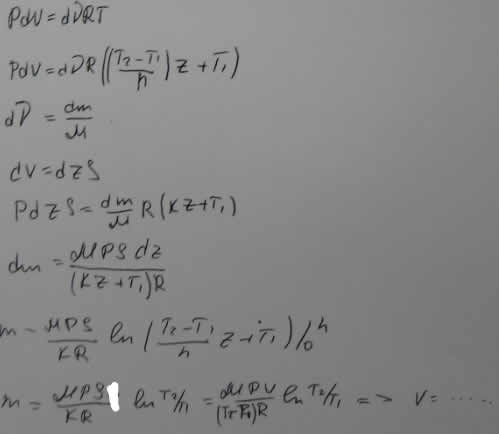 PdV = dνRT
PdV = dνR((T₂-T₁/h)z + T₁)
dν = dm/μ
dV = dzS
PdzS = dm/μ R(Kz+T₁)
dm = μPSdz/(Kz+T₁)R
m = μPS/KR ln(T₂-T₁/h z+T₁)/₀ʰ
m = μPS/KR ln T₂/T₁ = μPV/(T₂-T₁)R ln T₂/T₁ => V = .....